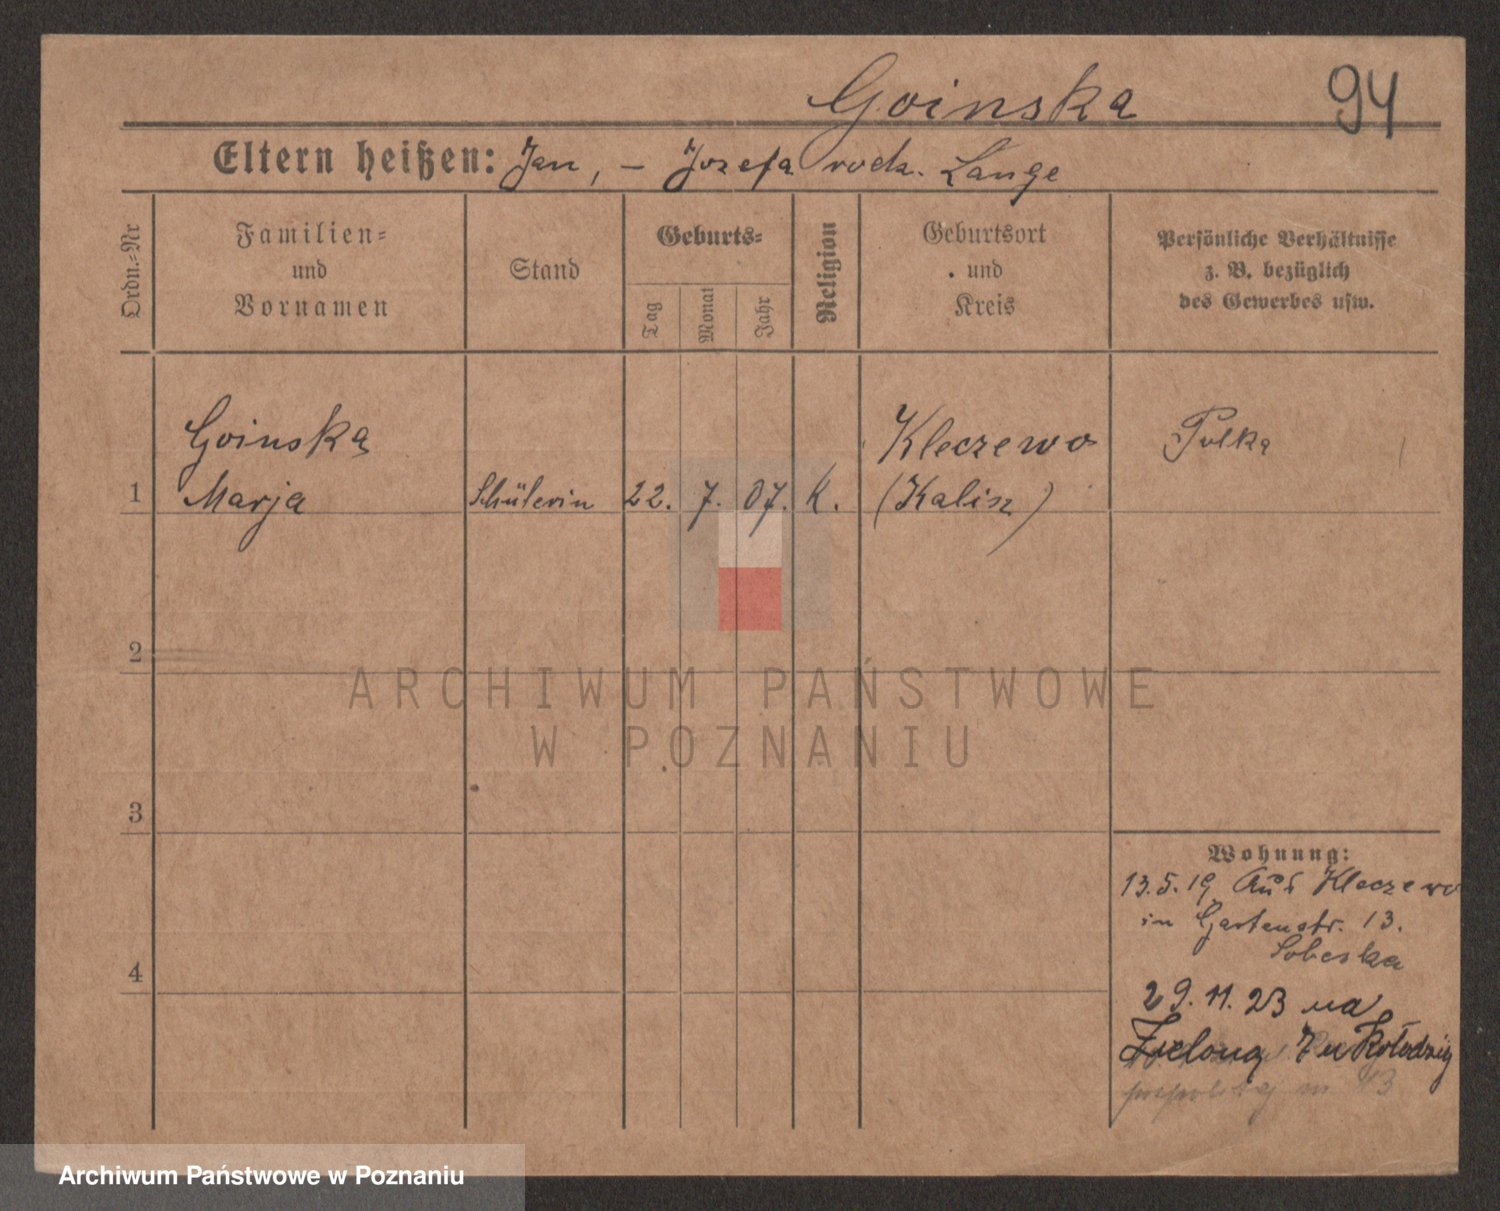 Goinska
94
Eltern heißen: Jan, – Jozefa rodz. Lange
Ordn.=Nr
Familien=
und
Vornamen
Stand
Geburts=
Tag
Monat
Jahr
Religion
Geburtsort
und
Kreis
Persönliche Verhältnisse
z. B. bezüglich
des Gewerbes usw.
Goinska
Marja
1
Schülerin
22.
7.
07.
K.
Kleczewo
(Kalisz)
Polka
2
3
4
Wohnung:
13.5.19 Aus Kleczewo
in Gartenstr. 13.
Sobeska
29.11.23 na
Zieloną 7 u Kołodziej
13
ARCHIWUM PAŃSTWOWE
W POZNANIU
Archiwum Państwowe w Poznaniu